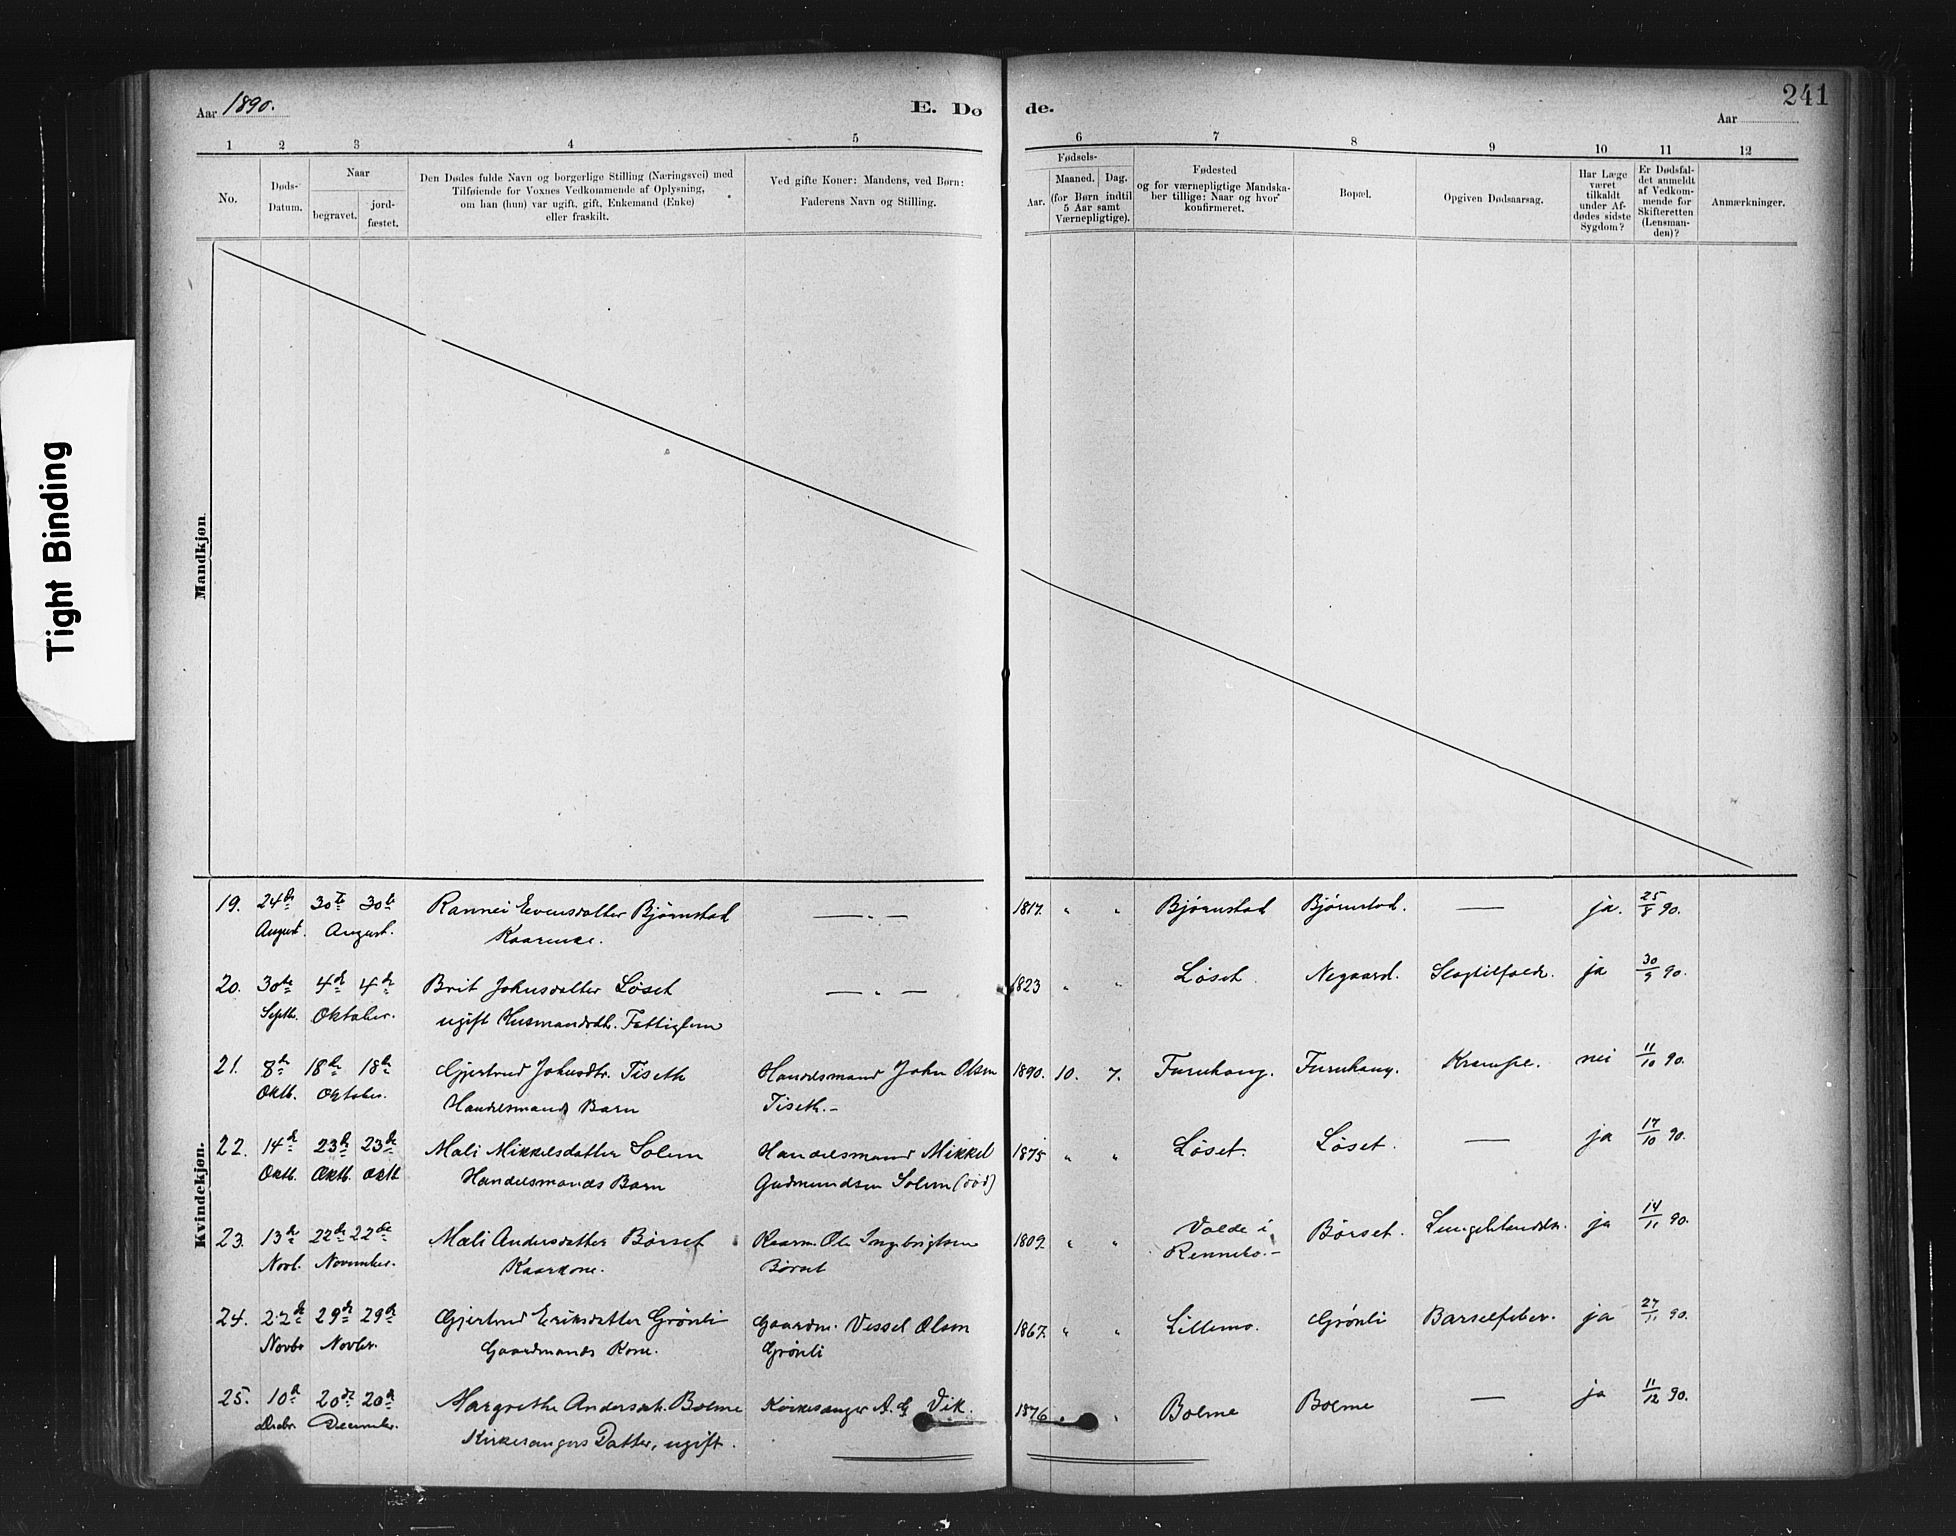 Tight Binding
Aar 1890.
E. Dø
de.
241
Aar
1 2 3 4 5 6 7 8 9 10 11 12
No.
Døds-
Datum.
Naar
begravet.
jord-
fæstet.
Den Dødes fulde Navn og borgerlige Stilling (Næringsvei) med
Tilføiende for Voxnes Vedkommende af Oplysning,
om han (hun) var ugift, gift, Enkemand (Enke)
eller fraskilt.
Ved gifte Koner: Mandens, ved Børn:
Faderens Navn og Stilling.
Fødsels-
Aar.
Maaned. Dag.
(for Børn indtil
5 Aar samt
Værnepligtige).
Fødested
og for værnepligtige Mandska-
ber tillige: Naar og hvor
konfirmeret.
Bopæl.
Opgiven Dødsaarsag.
Har Læge
været
tilkaldt
under Af-
dødes sidste
Sygdom?
Er Dødsfal-
det anmeldt
af Vedkom-
mende for
Skifteretten
(Lensman-
den)?
Anmærkninger.
Mandkjøn.
Kvindekjøn.
19. 24de 30te 30te Rannei Evensdatter Bjørnstad — „ — 1817. „ „ Bjørnstad Bjørnstad. — ja. 25/8 90.
August. August. Kaarenke.
20. 30te 4de 4de Brit Johnsdatter Løset — „ — 1823 „ „ Løset. Negaard. ja 30/9 90.
Septb. Oktober. ugift Husmandsdtr. Fattiglem
21. 8de 18de 18de Gjertrud Johnsdtr. Tiseth Handelsmand John Olsen 1890. 10. 7. Furuhaug. Furuhaug. Krampe. nei 11/10 90.
Oktb. Oktober. Handelsmands Barn Tiseth.-
22. 14de 23de 23de Mali Mikkelsdatter Solem Handelsmand Mikkel 1875 „ „ Løset. Løset. — ja 17/10 90.
Oktb. Oktb. Oktb Handelsmands Barn Gudmundsen Solem (død)
23. 13de 22de 22de Mali Andersdatter Børset Kaarm. Ole Ingebrigtsen 1809. „ „ Volde i Børset. ja 14/11 90.
Novb. November. Kaarkone. Børset Rennebo.-
24. 22de 29de 29de Gjertrud Eriksdatter Grønli Gaardm. Vessel Olsen 1867. „ „ Lillemo. Grønli Barselfeber. ja 27/11 90.
Novbr Novbr. Gaardmands Kone. Grønli
25. 10de 20de 20de Margrethe Andersdtr. Bolme Kirkesanger A. G. Vik. 1876 „ „ Bolme Bolme — ja 11/12 90.
Decbr. December. Kirkesangers Datter, ugift.